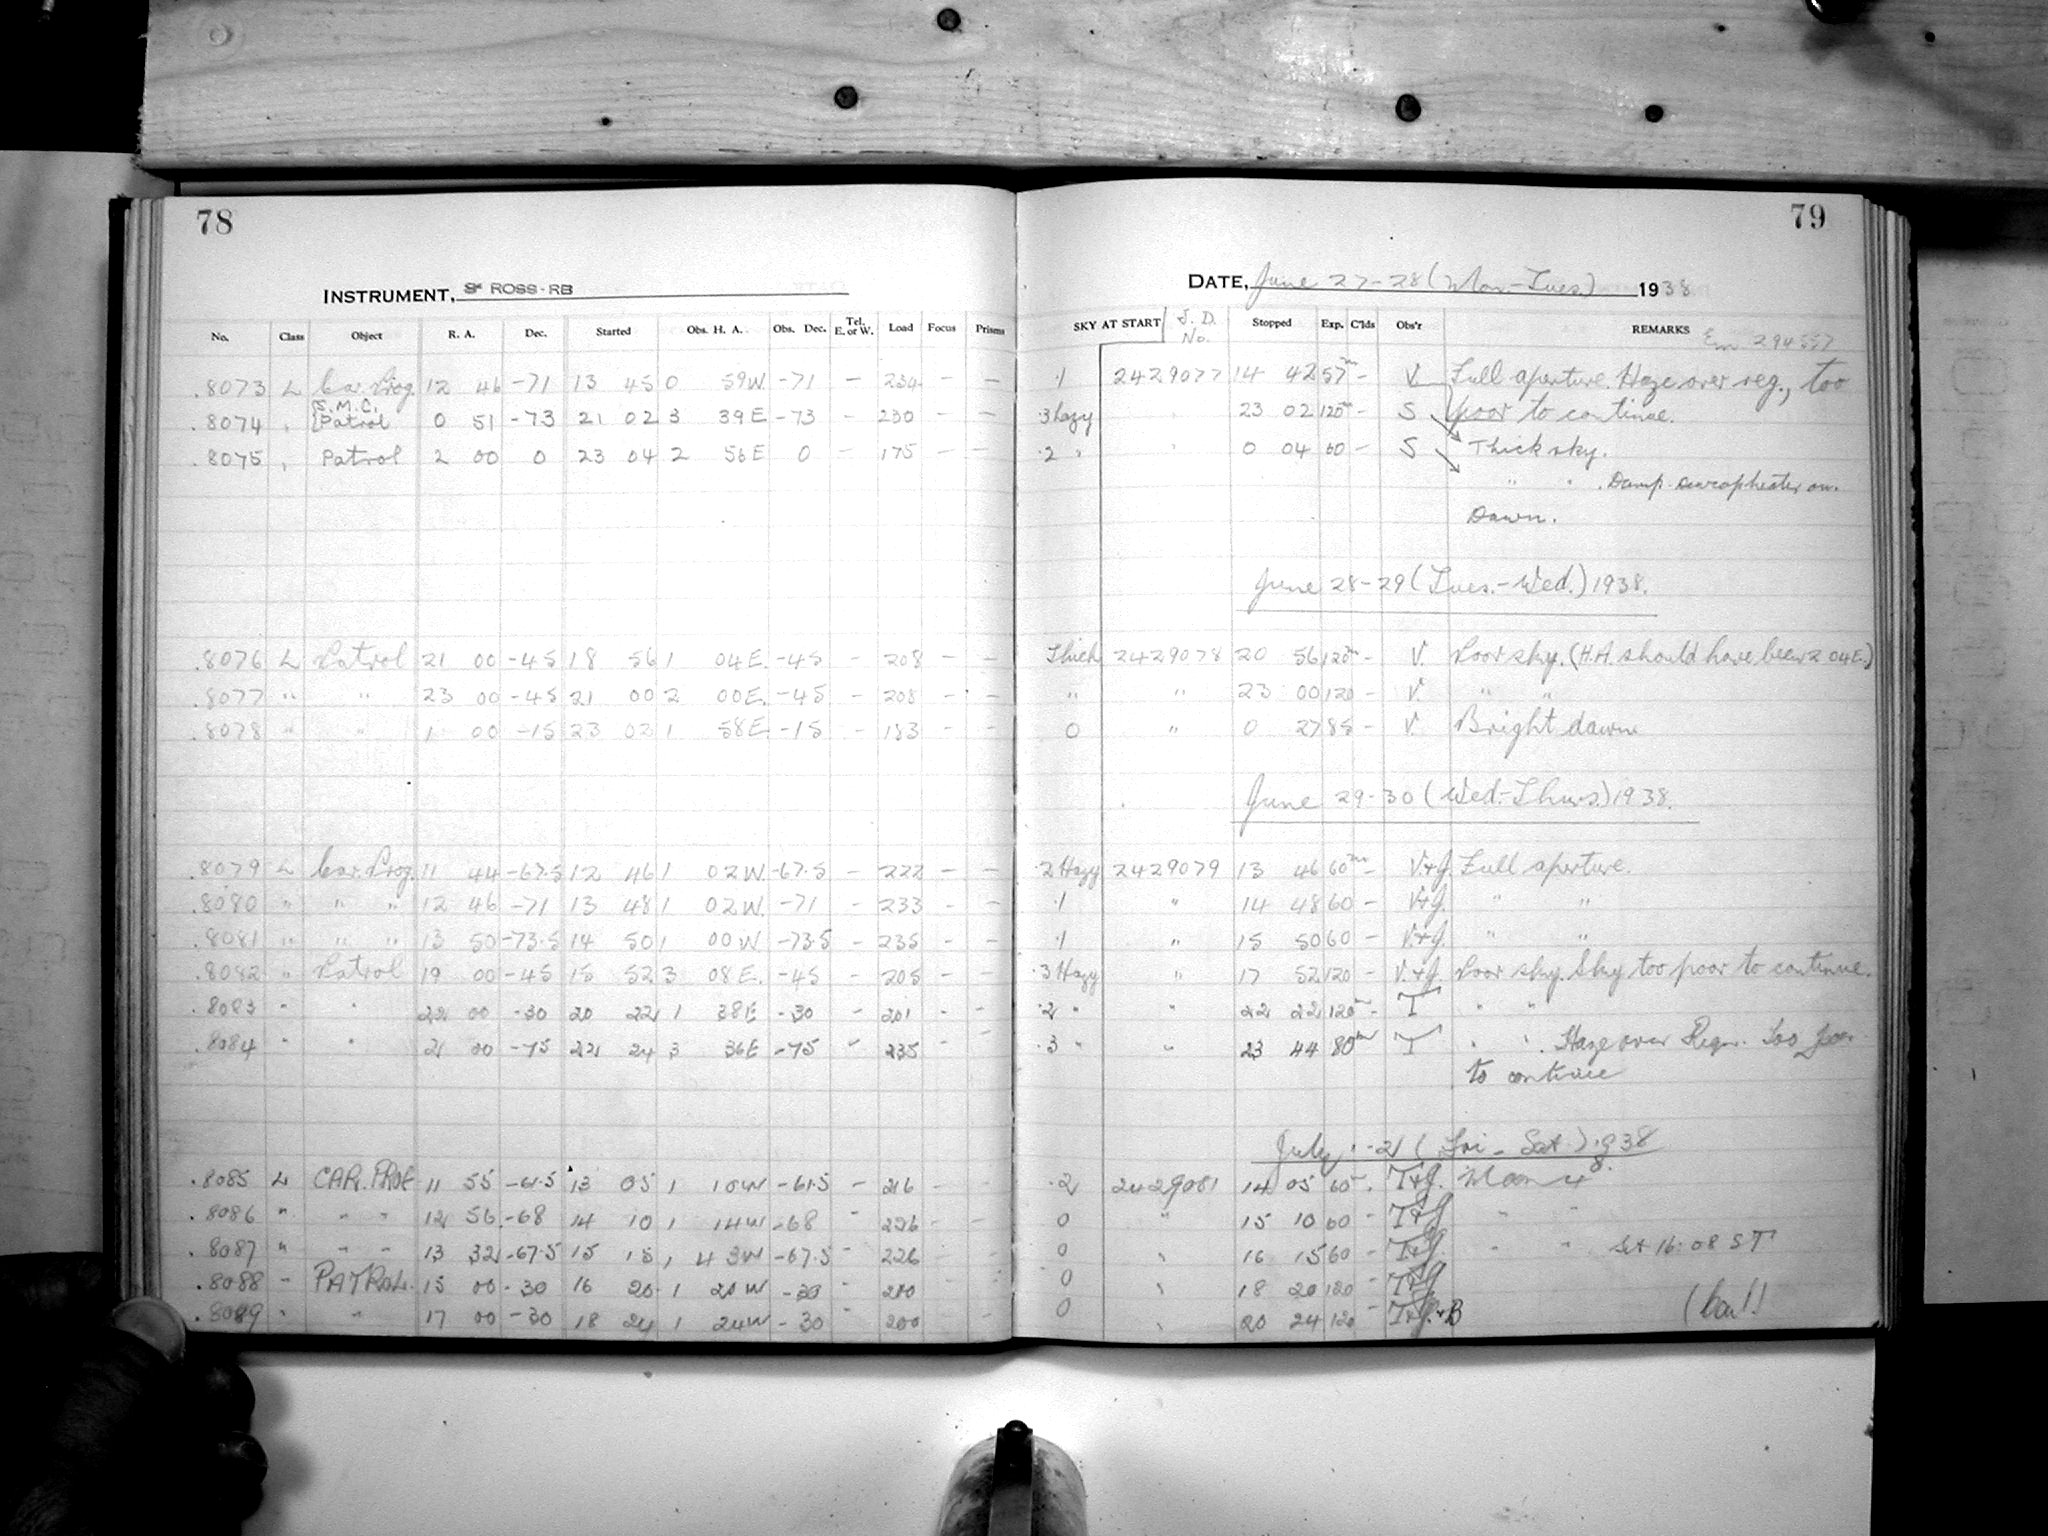 78
INSTRUMENT, 3" ROSS-RB
No. Class Object R. A. Dec. Started Obs. H. A. Obs. Dec. Tel. E. or W. Load Focus Prisms
.8073 L Car. Prog. 12 46 -71 13 45 0 59W -71 - 234 - -
.8074 " S.M.C. Patrol 0 51 -73 21 02 3 39E -73 - 230 - -
.8075 " Patrol 2 00 0 23 04 2 56E 0 - 175 - -
.8076 L Patrol 21 00 -45 18 56 1 04E. -45 - 208 - -
.8077 " " 23 00 -45 21 00 2 00E. -45 - 208 - -
.8078 " " 1 00 -15 23 02 1 58E. -15 - 183 - -
.8079 L Car. Prog. 11 44 -67.5 12 46 1 02W -67.5 - 222 - -
.8080 " " " 12 46 -71 13 48 1 02W. -71 - 233 - -
.8081 " " " 13 50 -73.5 14 50 1 00W -73.5 - 235 - -
.8082 " Patrol 19 00 -45 15 52 3 08E. -45 - 205 - -
.8083 " " 22 00 -30 20 22 1 38E -30 - 201 - -
.8084 " " 2 00 -75 22 24 3 36E -75 - 235 - -
.8085 L CAR. PROG 11 55 -61.5 13 05 1 10W -61.5 - 216 - -
.8086 " " " 12 56 -68 14 10 1 14W -68 - 226 - -
.8087 " " " 13 32 -67.5 15 15 1 43W -67.5 - 226 - -
.8088 " PATROL. 15 00 -30 16 20 1 20W -30 - 200 - -
.8089 " " 17 00 -30 18 24 1 24W -30 - 200 - -
79
DATE, June 27-28 (Mon-Tues) 1938
SKY AT START J. D. No. Stopped Exp. C'lds Obs'r REMARKS
Em 294557
.1 2429077 14 42 57m - V. Full aperture. Haze over reg., too
.3 hazy " 23 02 120m - S poor to continue.
.2 " " 0 04 60 - S Thick sky.
" " . Damp. Dewcap heater on.
Dawn.
June 28-29 (Tues.-Wed.) 1938.
Thick 2429078 20 56 120m - V. Poor sky. (H.A. should have been 2 04E.)
" " 23 00 120 - V. " "
0 " 0 27 85 - V. Bright dawn
June 29-30 (Wed.-Thurs.) 1938.
.2 Hazy 2429079 13 46 60m - V.+J. Full aperture.
.1 " 14 48 60 - V+J. " "
.1 " 15 50 60 - V.+J. " "
.3 Hazy " 17 52 120 - V.+J. Poor sky. Sky too poor to continue.
.2 " " 22 22 120m - T " "
.3 " " 23 44 80m - T " " . Haze over Regn. Too poor
to continue
July 1-2 (Fri - Sat) 1938
.2 2429081 14 05 60m - T+J. Moon 4
0 " 15 10 60 - T+J " "
0 " 16 15 60 - T+J. " " Set 16:08 ST
0 " 18 20 120 - T+J
0 " 20 24 120 - T+J.+B (Cont.)